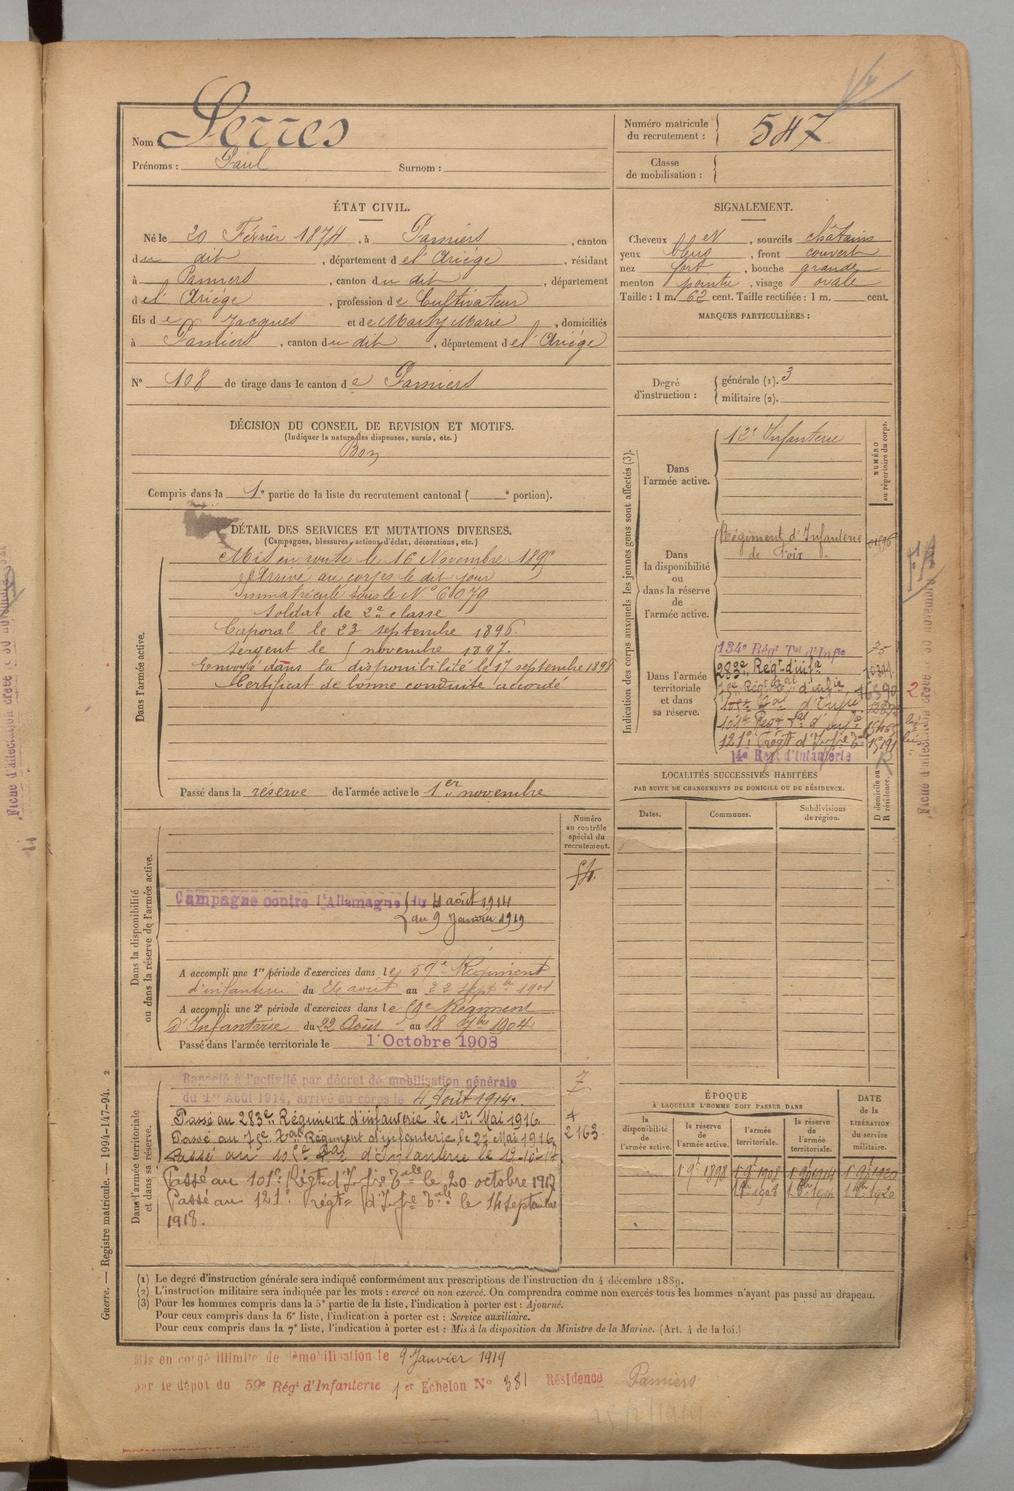 Nom Serres
Prénoms : Paul Surnom :
Numéro matricule du recrutement : 547
Classe de mobilisation :
ÉTAT CIVIL.
Né le 20 Février 1874, à Pamiers, canton
du dit, département de l'Ariège, résidant
à Pamiers, canton du dit, département
de l'Ariège, profession de Cultivateur
fils de Jacques et de Marty Marie, domiciliés
à Pamiers, canton du dit, département de l'Ariège
N° 108 de tirage dans le canton de Pamiers
SIGNALEMENT.
Cheveux et, sourcils châtains
yeux bleus, front couvert
nez fort, bouche grande
menton pointu, visage ovale
Taille : 1 m. 62 cent. Taille rectifiée : 1 m. cent.
MARQUES PARTICULIÈRES :
Degré d'instruction : générale (1). 3
militaire (2).
DÉCISION DU CONSEIL DE REVISION ET MOTIFS.
(Indiquer la nature des dispenses, sursis, etc.)
Bon
Compris dans la 1e partie de la liste du recrutement cantonal ( e portion).
DÉTAIL DES SERVICES ET MUTATIONS DIVERSES.
(Campagnes, blessures, actions d'éclat, décorations, etc.)
Dans l'armée active.
Mis en route le 16 Novembre 189
Arrivé au corps le dit jour
Immatriculé sous le N° 6079
Soldat de 2e classe
Caporal le 23 septembre 1896.
Sergent le 5 novembre 1897.
Envoyé dans la disponibilité le 17 septembre 1898
Certificat de bonne conduite accordé
Passé dans la réserve de l'armée active le 1er novembre
Indication des corps auxquels les jeunes gens sont affectés (3).
NUMÉRO au répertoire du corps.
Dans l'armée active.
12e Infanterie
Dans la disponibilité ou dans la réserve de l'armée active.
Régiment d'Infanterie
de Foix.
Dans l'armée territoriale et dans sa réserve.
134e Régt Tal d'Infie 75
283e Régt d'infie
121e Régt d'Infie
14e Regt d'Infanterie
LOCALITÉS SUCCESSIVES HABITÉES
PAR SUITE DE CHANGEMENTS DE DOMICILE OU DE RÉSIDENCE.
D domicile ou R résidence.
Dates. Communes. Subdivisions de région.
Numéro au contrôle spécial du recrutement.
Dans la disponibilité ou dans la réserve de l'armée active.
Campagne contre l'Allemagne du 4 août 1914
au 9 Janvier 1919
A accompli une 1re période d'exercices dans le 59e Régiment
d'infanterie du août au 22 septbre 1901
A accompli une 2e période d'exercices dans le 59e Régiment
d'Infanterie du 22 Août au 18 7bre 1904
Passé dans l'armée territoriale le 1 Octobre 1908
Dans l'armée territoriale et dans sa réserve.
Rappelé à l'activité par décret de mobilisation générale
du 1er Août 1914, arrivé au corps le 4 Août 1914.
Passé au 283e Régiment d'infanterie le 1er Mai 1916
Passé au 75e Régiment d'infanterie, le 27 Mai 1916
2163
Passé au d'Infanterie le 12-10-17
Passé au 101e Régt d'Infie Tale le 20 octobre 1917
Passé au 121e Régt d'Infie le 14 Septembre
1918.
ÉPOQUE
À LAQUELLE L'HOMME DOIT PASSER DANS
la disponibilité de l'armée active. la réserve de l'armée active. l'armée territoriale. la réserve de l'armée territoriale. DATE de la LIBÉRATION du service militaire.
1 9bre 1898 1 9bre 1908 1 9bre 1914 1 9bre 1920
Guerre. — Registre matricule. — 1994-147-94. 2
(1) Le degré d'instruction générale sera indiqué conformément aux prescriptions de l'instruction du 4 décembre 1889.
(2) L'instruction militaire sera indiquée par les mots : exercé ou non exercé. On comprendra comme non exercés tous les hommes n'ayant pas passé au drapeau.
(3) Pour les hommes compris dans la 5e partie de la liste, l'indication à porter est : Ajourné.
Pour ceux compris dans la 6e liste, l'indication à porter est : Service auxiliaire.
Pour ceux compris dans la 7e liste, l'indication à porter est : Mis à la disposition du Ministre de la Marine. (Art. 4 de la loi.)
Mis en congé illimité de démobilisation le 9 Janvier 1919
par le dépôt du 59e Régt d'Infanterie 1er Echelon N° 381 Résidence Pamiers